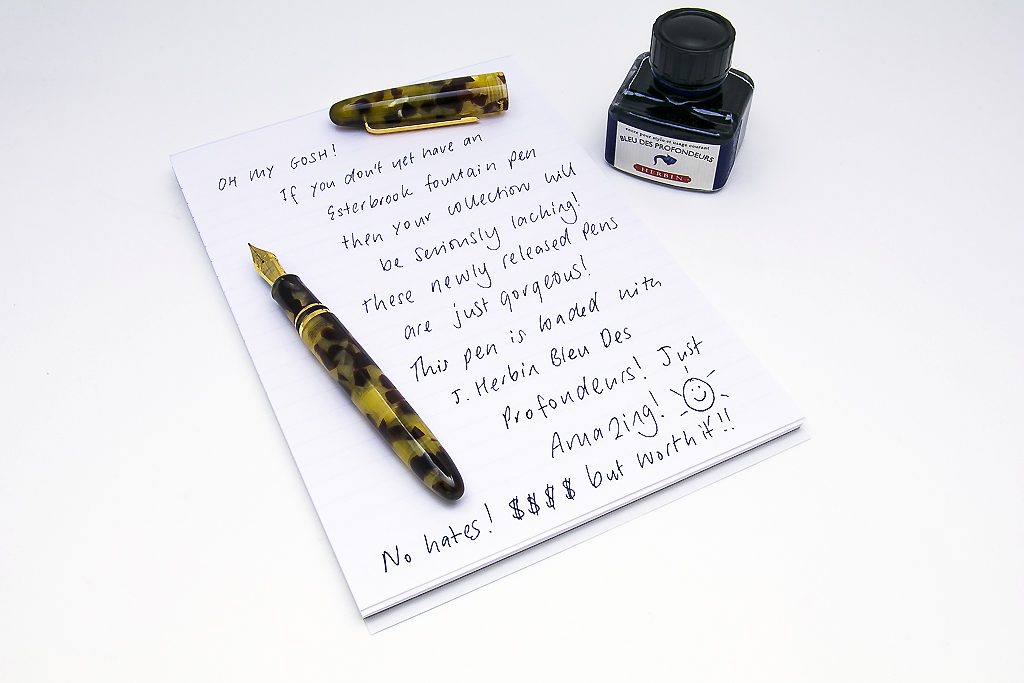 OH MY GOSH!
If you don't yet have an
Esterbrook fountain pen
then your collection will
be seriously lacking!
these newly released pens
are just gorgeous!
This pen is loaded with
J. Herbin Bleu Des
Profondeurs! Just
Amazing!
No hates! $$$$ but worth it!!
encre pour stylo et usage courant
BLEU DES PROFONDEURS
HERBIN